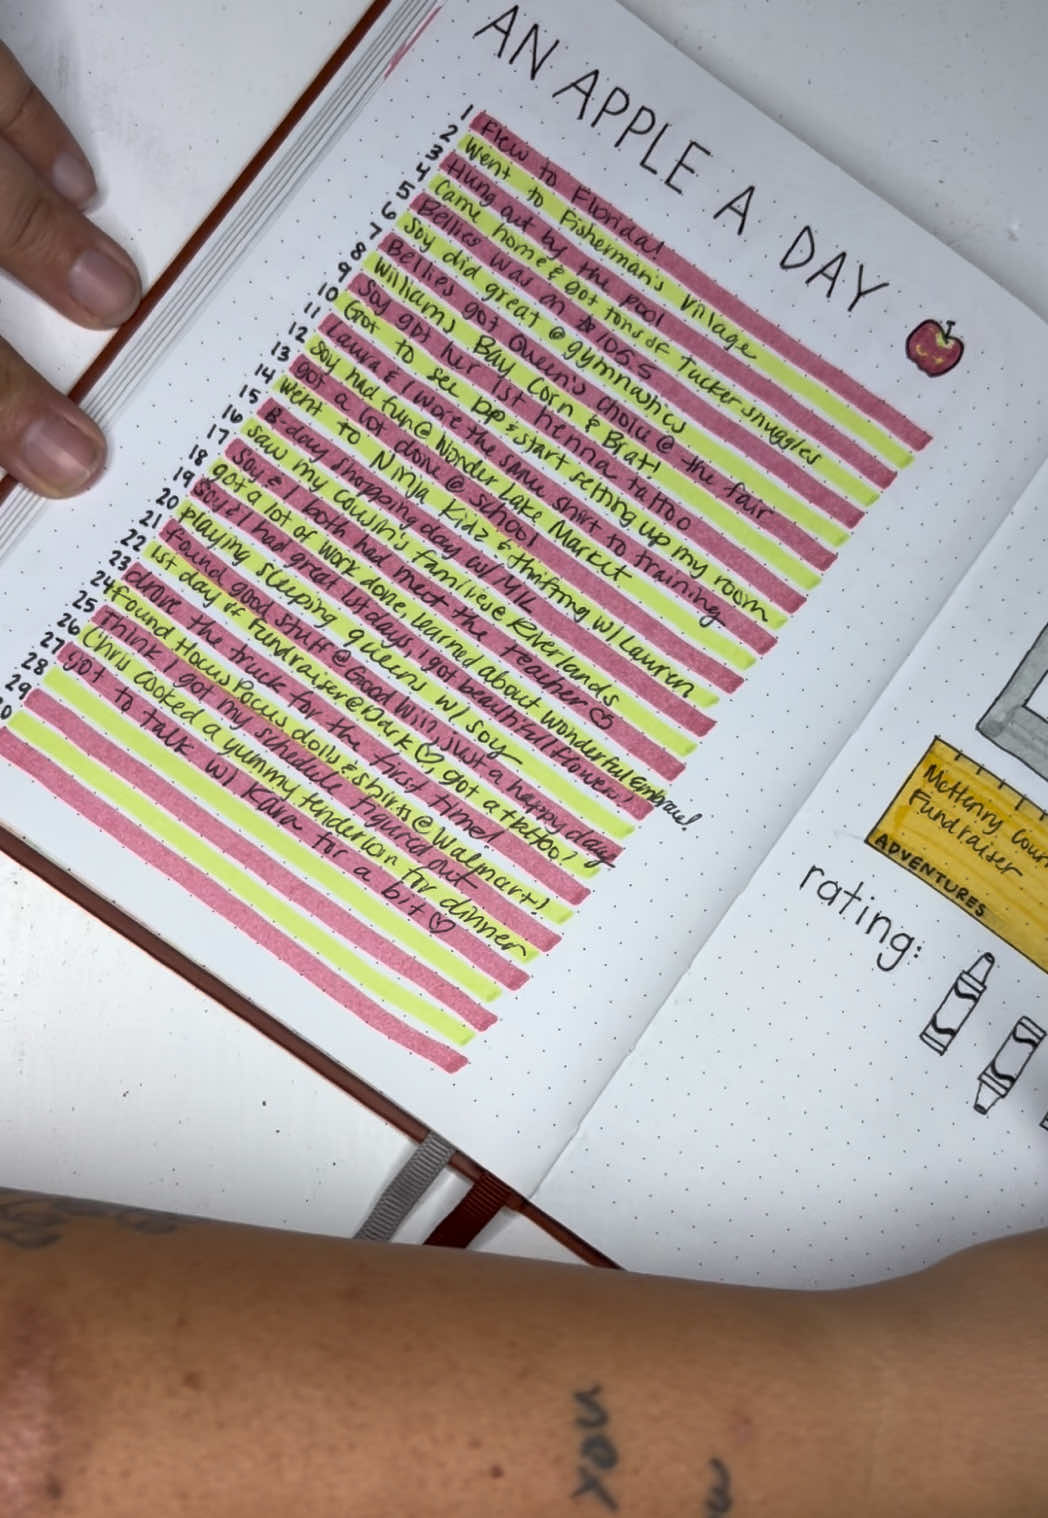 AN APPLE A DAY
1 Flew to Florida!
2 Went to Fisherman's Village
3 Hung out by the pool
4 Came home & got tons of Tucker snuggles
5 Bellies was on 105.5
6 Soy did great @ gymnastics
7 Bellies got Queen's choice @ the fair
8 Williams Bay Corn & Brat!
9 Soy got her 1st henna tattoo
10 Got to see pp & start setting up my room
11 Laura & I wore the same shirt to training
12 Soy had fun @ Wonder Lake Market
13 got a lot done @ school
14 Went to Ninja Kidz & thrifting w/ Lauren
15 B-day shopping day w/
16 saw my cousin's families @ Riverlands
17 Soy & I both had meet the teacher ♡
18 got a lot of work done, learned about wonderful Embrace!
19 Soy & I had great 1st days, I got beautiful flowers!
20 playing sleeping queens w/ soy
21 found good stuff @ Goodwill, just a happy day
22 1st day of Fundraiser @ ♡, got a tattoo!
23 drove the truck for the first time!
24 found Hocus Pocus dolls & shirts @ Walmart!
25 Think I got my schedule figured out
26 Chris cooked a yummy tenderloin for dinner
27 got to talk w/ Kara for a bit ♡
28
29
McHenry
Fundraiser
ADVENTURES
rating:
you